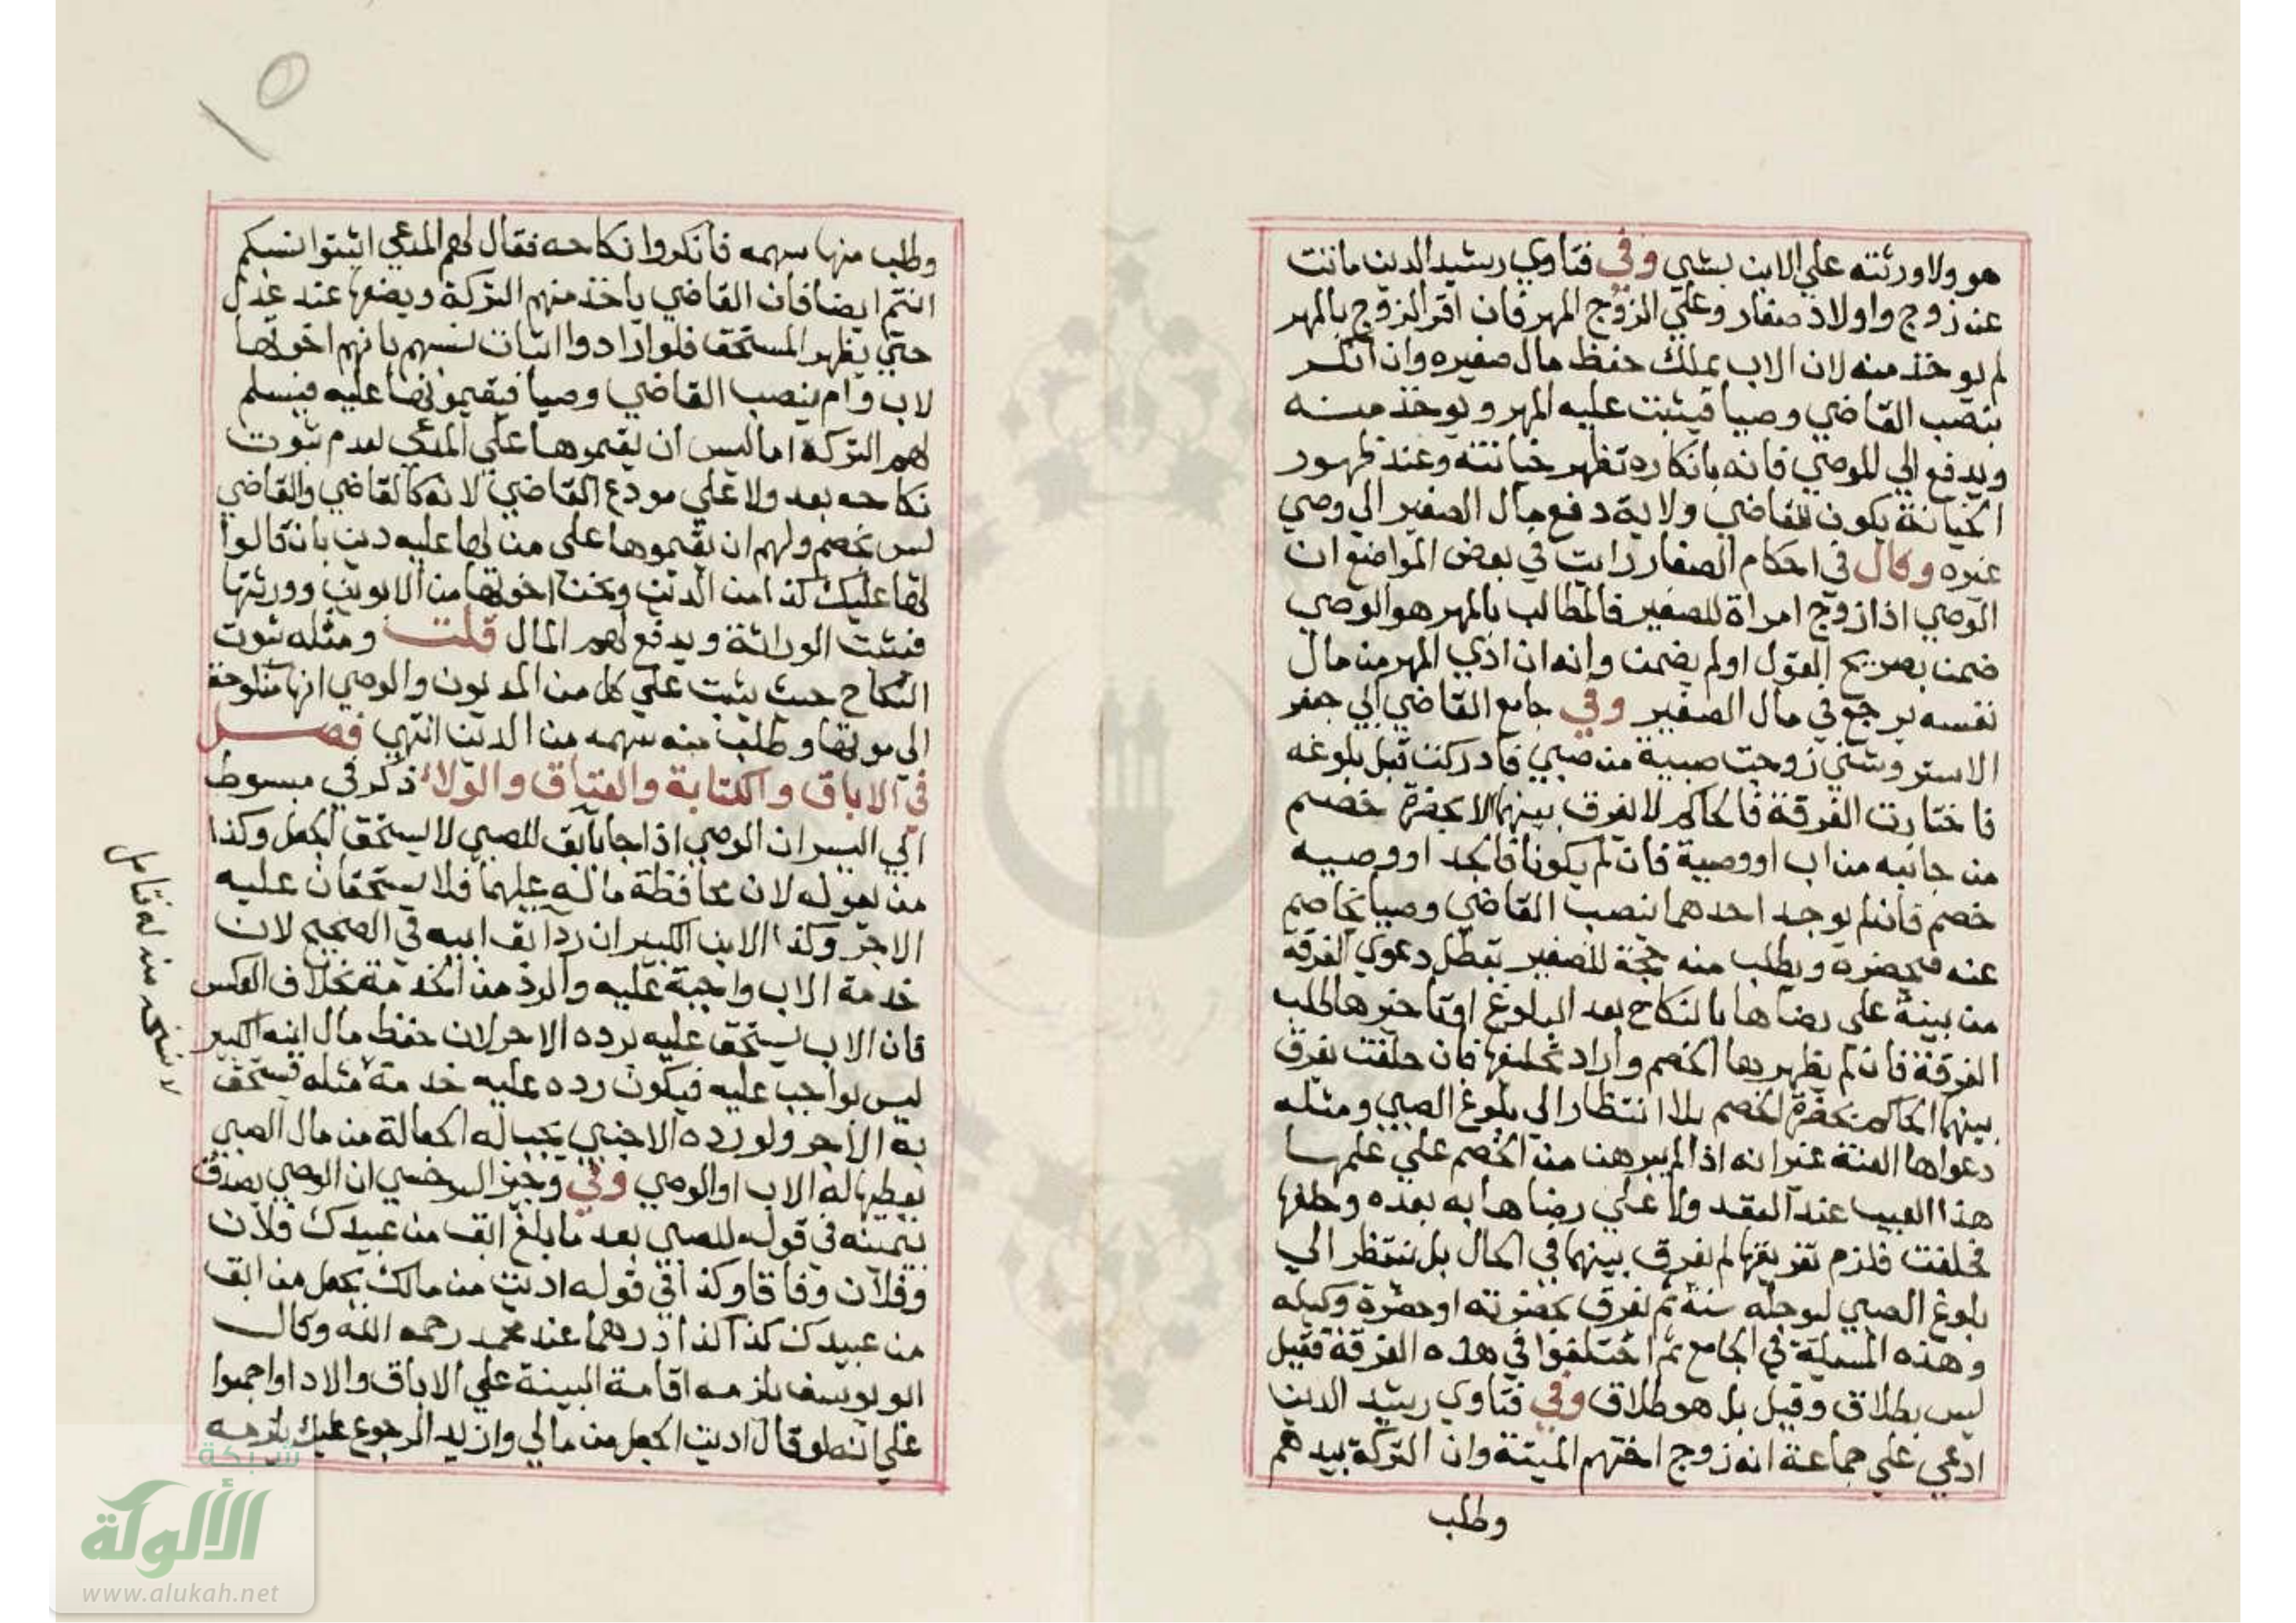 هو ولا ورثته علي الابن بشي وفي فتاوي رشيد الدين ماتت
عن زوج واولاد صغار وعلي الزوج المهر فان اقر الزوج بالمهر
لم يوخذ منه لان الاب يملك حفظ مال صغيره وان انكر
ينصب القاضي وصيا فيثبت عليه المهر ويوخذ منه
ويدفع الي للوصي فانه بانكاره تظهر خيانته وعند ظهور
الخيانة يكون للقاضي ولاية دفع مال الصغير الي وصي
غيره وقال في احكام الصغار رايت في بعض المواضع ان
الوصي اذا زوج امراة للصغير فالمطالب بالمهر هو الوصي
ضمن بصريح القول او لم يضمن وانه ان ادي المهر من مال
نفسه يرجع في مال الصغير وفي جامع القاضي ابي جعفر
الاستروشني زوجت صبية من صبي فادركت قبل بلوغه
فاختارت الفرقة فالحاكم لا يفرق بينهما الا بحضرة خصم
من جانبه من اب او وصية فان لم يكونا فالجد او وصيه
خصم فان لم يوجد احدهما ينصب القاضي وصيا يخاصم
عنه فيحضره ويطلب منه حجة للصغير تبطل دعوي الفرقة
من بينة علي رضاها بالنكاح بعد البلوغ او تاخيرها طلب
الفرقة فان لم يظهر بها الخصم واراد تحليفها فان حلفت يفرق
بينهما الحاكم بحضرة الخصم بلا انتظار الي بلوغ الصبي ومثله
دعواها العنة غير انه اذا لم يبرهن من الخصم علي علمها
هذا العيب عند العقد ولا علي رضاها به بعده وحلفها
فحلفت فلزم تفريقها لم يفرق بينهما في الحال بل ينتظر الي
بلوغ الصبي ليوجله سنة ثم يفرق بحضرته او حضرة وكيله
وهذه المسيلة في الجامع ثم اختلفوا في هذه الفرقة فقيل
ليس بطلاق وقيل بل هو طلاق وفي فتاوي رشيد الدين
ادعي علي جماعة انه زوج اختهم الميتة وان التركة بيدهم
وطلب
وطلب منها سهمه فانكروا نكاحه فقال لهم المدعي اثبتوا نسبكم
انتم ايضا فان القاضي ياخذ منهم التركة ويضعها عند عدل
حتي يظهر المستحق فلو ارادوا اثبات نسبهم بانهم اخوتها
لاب وام ينصب القاضي وصيا فيقيمونها عليه فيسلم
لهم التركة اما ليس ان يقيموها علي المدعي لعدم ثبوت
نكاحه بعد ولا علي مودع القاضي لانه كالقاضي والقاضي
ليس بخصم ولهم ان يقيموها علي من لها عليه دين بان قالوا
لها عليك كذا من الدين ونحن اخوتها من الابوين وورثتها
فتثبت الوراثة ويدفع لهم المال قلت ومثله ثبوت
النكاح حيث يثبت علي كل من المديون والوصي انها منكوحة
الي موتها وطلب منه سهمه من الدين انتهي فصل
في الاباق والكتابة والعتاق والولاء ذكر في مبسوط
ابي اليسر ان الوصي اذا جا بابق للصبي لا يستحق الجعل وكذا
من يعوله لان محافظة ماله عليهما فلا يستحقان عليه
الاجر وكذا الابن الكبير ان رد ابق ابيه في الصحيح لان
خدمة الاب واجبة عليه والرد من الخدمة بخلاف العكس
فان الاب يستحق عليه برده الاجر لان حفظ مال ابنه الكبير
ليس بواجب عليه فيكون رده عليه خدمة مثله فيستحق
به الاجر ولو رده الاجنبي يجب له الجعالة من مال الصبي
يعطيها له الاب او الوصي وفي وجيز السرخسي ان الوصي يصدق
بيمينه في قوله للصبي بعد ما بلغ ابق من عبيدك فلان
وفلان وفاقا وكذا في قوله اديت من مالك بجعل من ابق
من عبيدك كذا كذا درهما عند محمد رحمه الله وقال
ابو يوسف يلزمه اقامة البينة علي الاباق والادا واجمعوا
علي انه لو قال اديت الجعل من مالي واريد الرجوع عليك يلزمه
١٥
شبكة
الألوكة
www.alukah.net